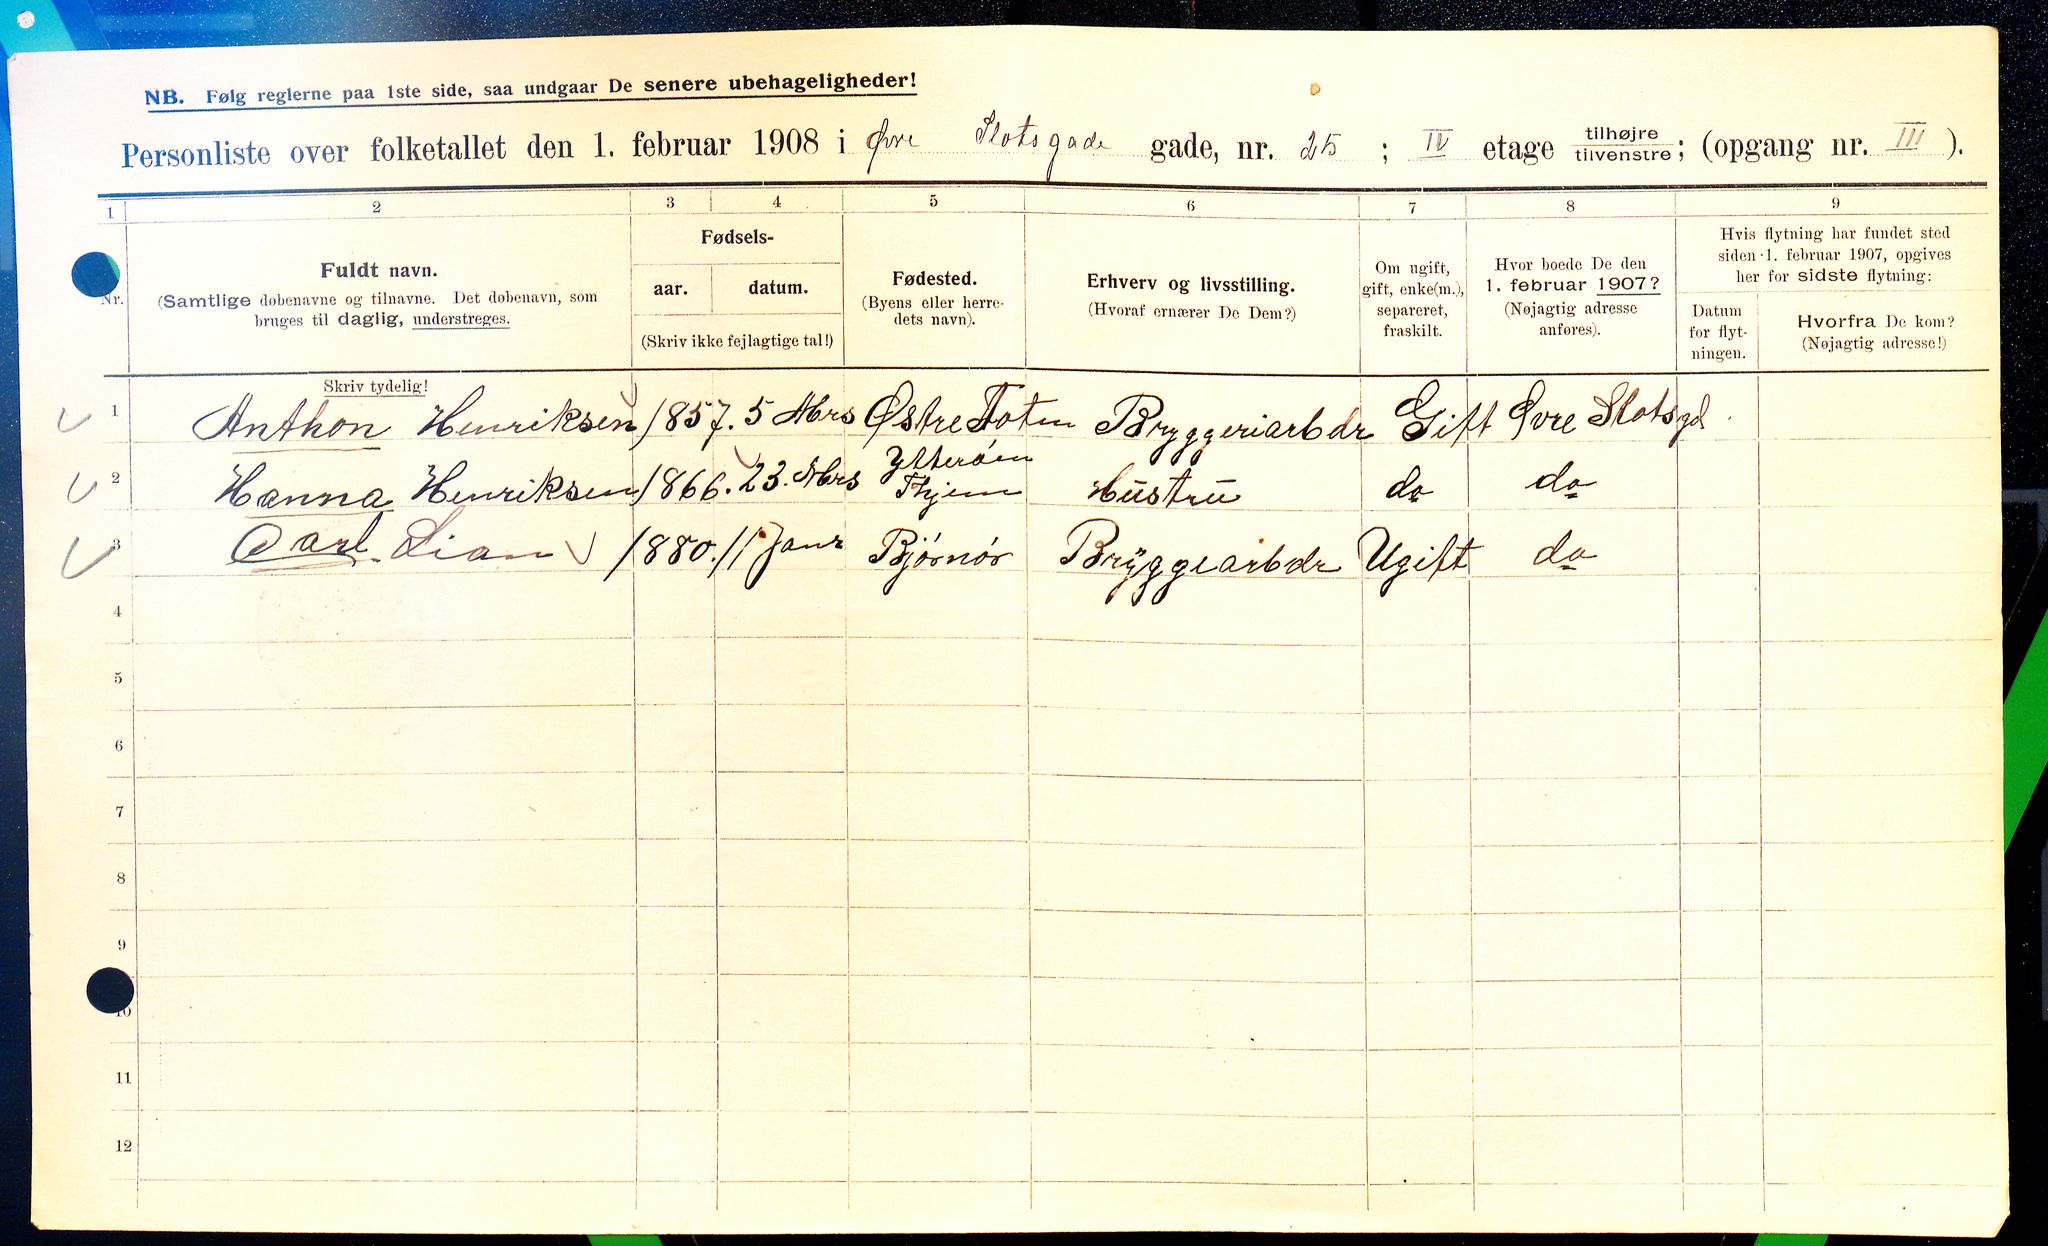 NB. Følg reglerne paa 1ste side, saa undgaar De senere ubehageligheder!
Personliste over folketallet den 1. februar 1908 i Øvre Slotsgade gade, nr. 25 ; IV etage tilhøjre / tilvenstre ; (opgang nr. III ).
1 2 3 4 5 6 7 8 9
Nr.
Fuldt navn.
(Samtlige døbenavne og tilnavne. Det døbenavn, som
bruges til daglig, understreges.
Skriv tydelig!
Fødsels-
aar. datum.
(Skriv ikke fejlagtige tal!)
Fødested.
(Byens eller herre-
dets navn).
Erhverv og livsstilling.
(Hvoraf ernærer De Dem?)
Om ugift,
gift, enke(m.),
separeret,
fraskilt.
Hvor boede De den
1. februar 1907?
(Nøjagtig adresse
anføres).
Hvis flytning har fundet sted
siden 1. februar 1907, opgives
her for sidste flytning:
Datum
for flyt-
ningen.
Hvorfra De kom?
(Nøjagtig adresse!)
1 Anthon Henriksen 1857. 5 Mrs Østre Toten Bryggeriarbdr Gift Øvre Slotsgd.
2 Hanna Henriksen 1866. 23. Mrs Ytterøen Thjem Hustru do do
3 Carl Lian 1880. 11 Janr Bjørnør Bryggearbdr Ugift do
4
5
6
7
8
9
10
11
12